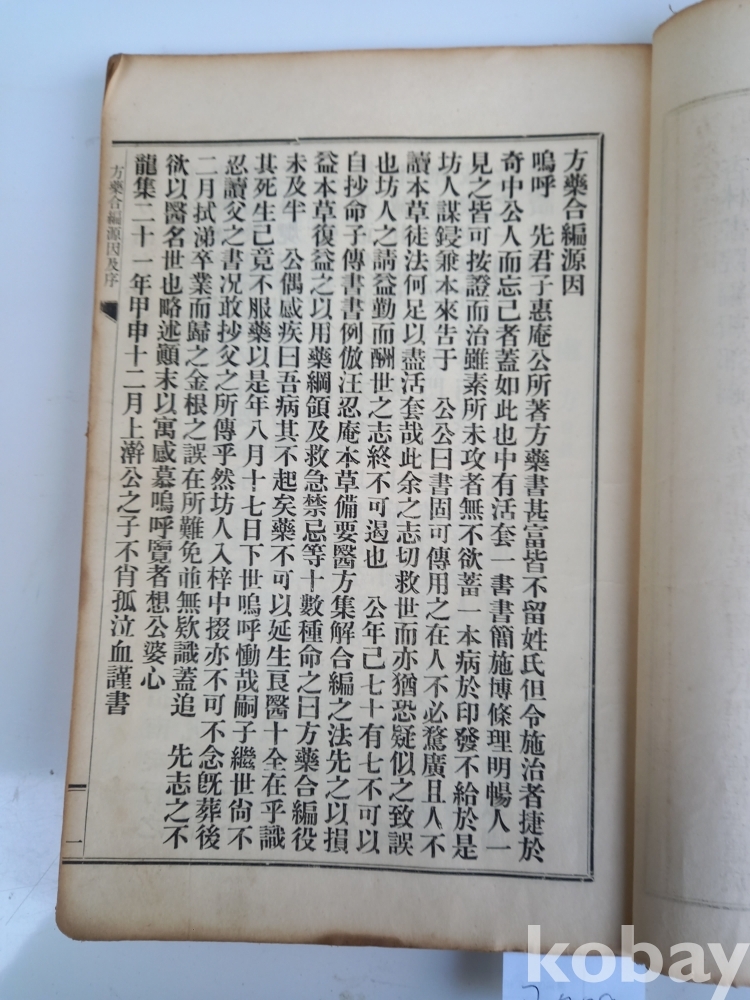 方藥合編源因
嗚呼 先君子惠庵公所著方藥書甚富皆不留姓氏但令施治者捷於
奇中公人而忘己者蓋如此也中有活套一書書簡施博條理明暢人一
見之皆可按證而治雖素所未攻者無不欲蓄一本病於印發不給於是
坊人謀鋟兼本來告于 公公曰書固可傳用之在人不必騖廣且人不
讀本草徒法何足以盡活套哉此余之志切救世而亦猶恐疑似之致誤
也坊人之請益勤而酬世之志終不可遏也 公年己七十有七不可以
自抄命子傳書書例倣汪忍庵本草備要醫方集解合編之法先之以損
益本草復益之以用藥綱領及救急禁忌等十數種命之曰方藥合編役
未及半 公偶感疾曰吾病其不起矣藥不可以延生良醫十全在乎識
其死生己竟不服藥以是年八月十七日下世嗚呼慟哉嗣子繼世尙不
忍讀父之書况敢抄父之所傳乎然坊人入梓中掇亦不可不念旣葬後
二月拭涕卒業而歸之金根之誤在所難免並無欵識蓋追 先志之不
欲以醫名世也略述顚末以寓感慕嗚呼覽者想公婆心
龍集二十一年甲申十二月上澣公之子不肖孤泣血謹書
方藥合編源因及序
一
kobay